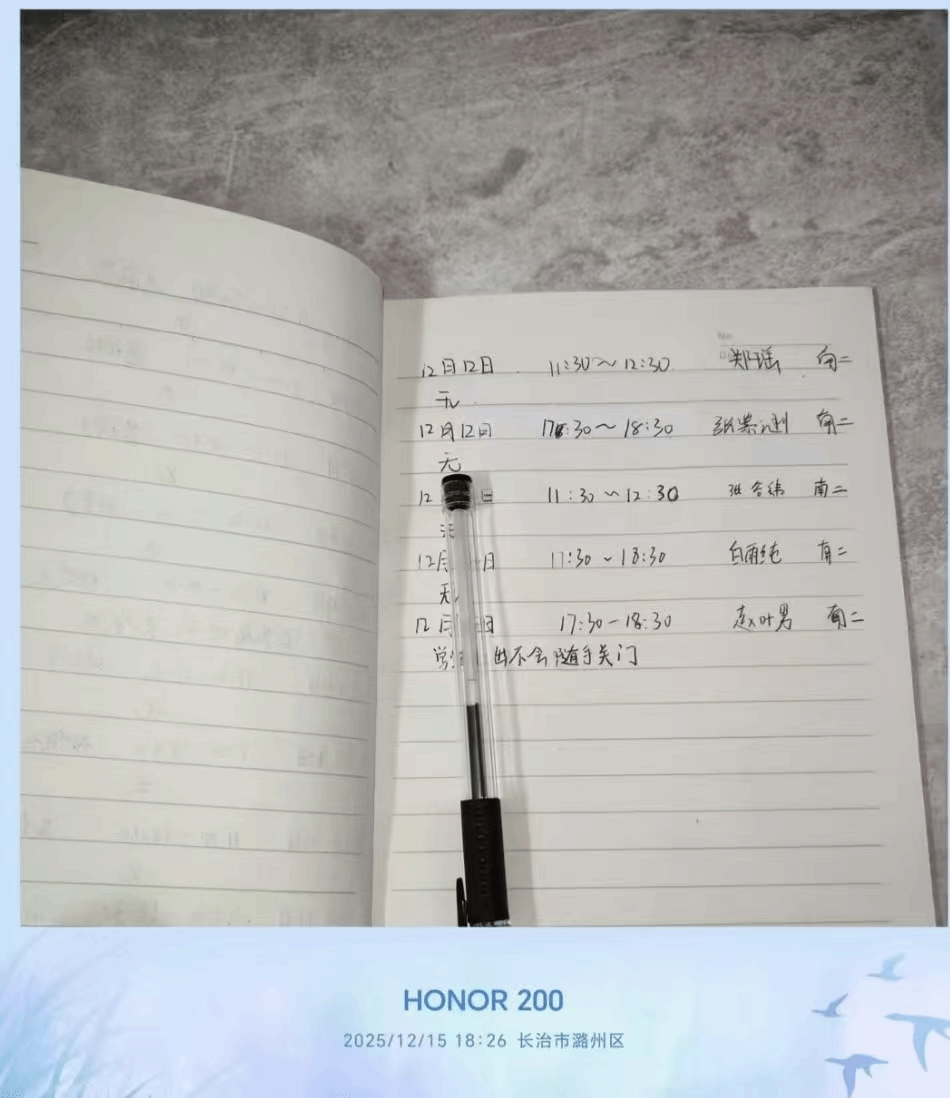 12月12日 11:30~12:30 郑瑶 南二
无
12月12日 17:30~18:30 南二
无
12 日 11:30~12:30 南二
无
12月 日 17:30~18:30 白雨纯 南二
无
12月 日 17:30-18:30 赵叶男 南二
学生 出不会随手关门
HONOR 200
2025/12/15 18:26 长治市潞州区